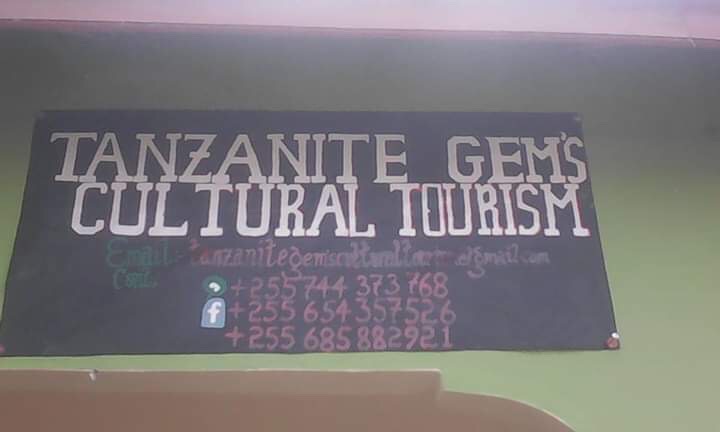 TANZANITE GEM'S
CULTURAL TOURISM
Email:- tanzanitegemsculturaltourism@gmail.com
Cont:
+255 744 373 768
+255 654 357526
+255 685 882921